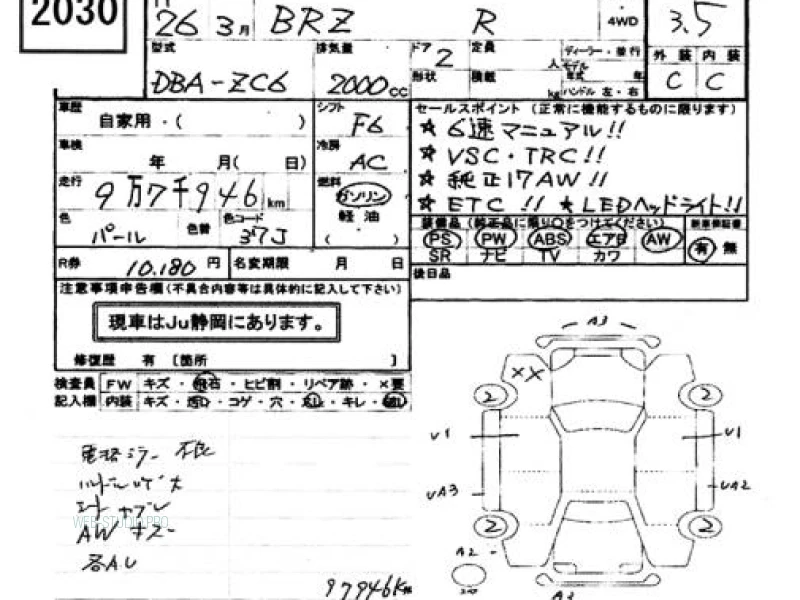 2030
26 3月 BRZ R 4WD 3.5
型式 排気量 ドア 2 定員 人 ディーラー・並行
DBA-ZC6 2000cc 形状 積載 kg モデル年式 年 ハンドル 左・右
外装 内装
C C
車歴 自家用・( ) シフト F6
車検 年 月( 日) 冷房 AC
走行 9万7千946km 燃料 ガソリン 軽油 ( )
色 パール 色替 色コード 37J
セールスポイント (正常に機能するものに限ります)
☆ 6速マニュアル!!
☆ VSC・TRC!!
☆ 純正17AW!!
☆ ETC!! ★ LEDヘッドライト!!
装備品 (純正品に限り○をつけてください) 新車保証書
PS PW ABS エアB AW 有 無
SR ナビ TV カワ
R券 10,180円 名変期限 月 日
後日品
注意事項申告欄(不具合内容等は具体的に記入して下さい)
現車はJu静岡にあります。
修復歴 有 〔箇所 〕
検査員 FW キズ・飛石・ヒビ割・リペア跡・×要
記入欄 内装 キズ・コゲ・穴・キレ
電格ミラー 不良
AW キズ
各A.U
97946Km
A3
XX
2 2
U1 U1
UA3 UA2
2 2
A2
A3